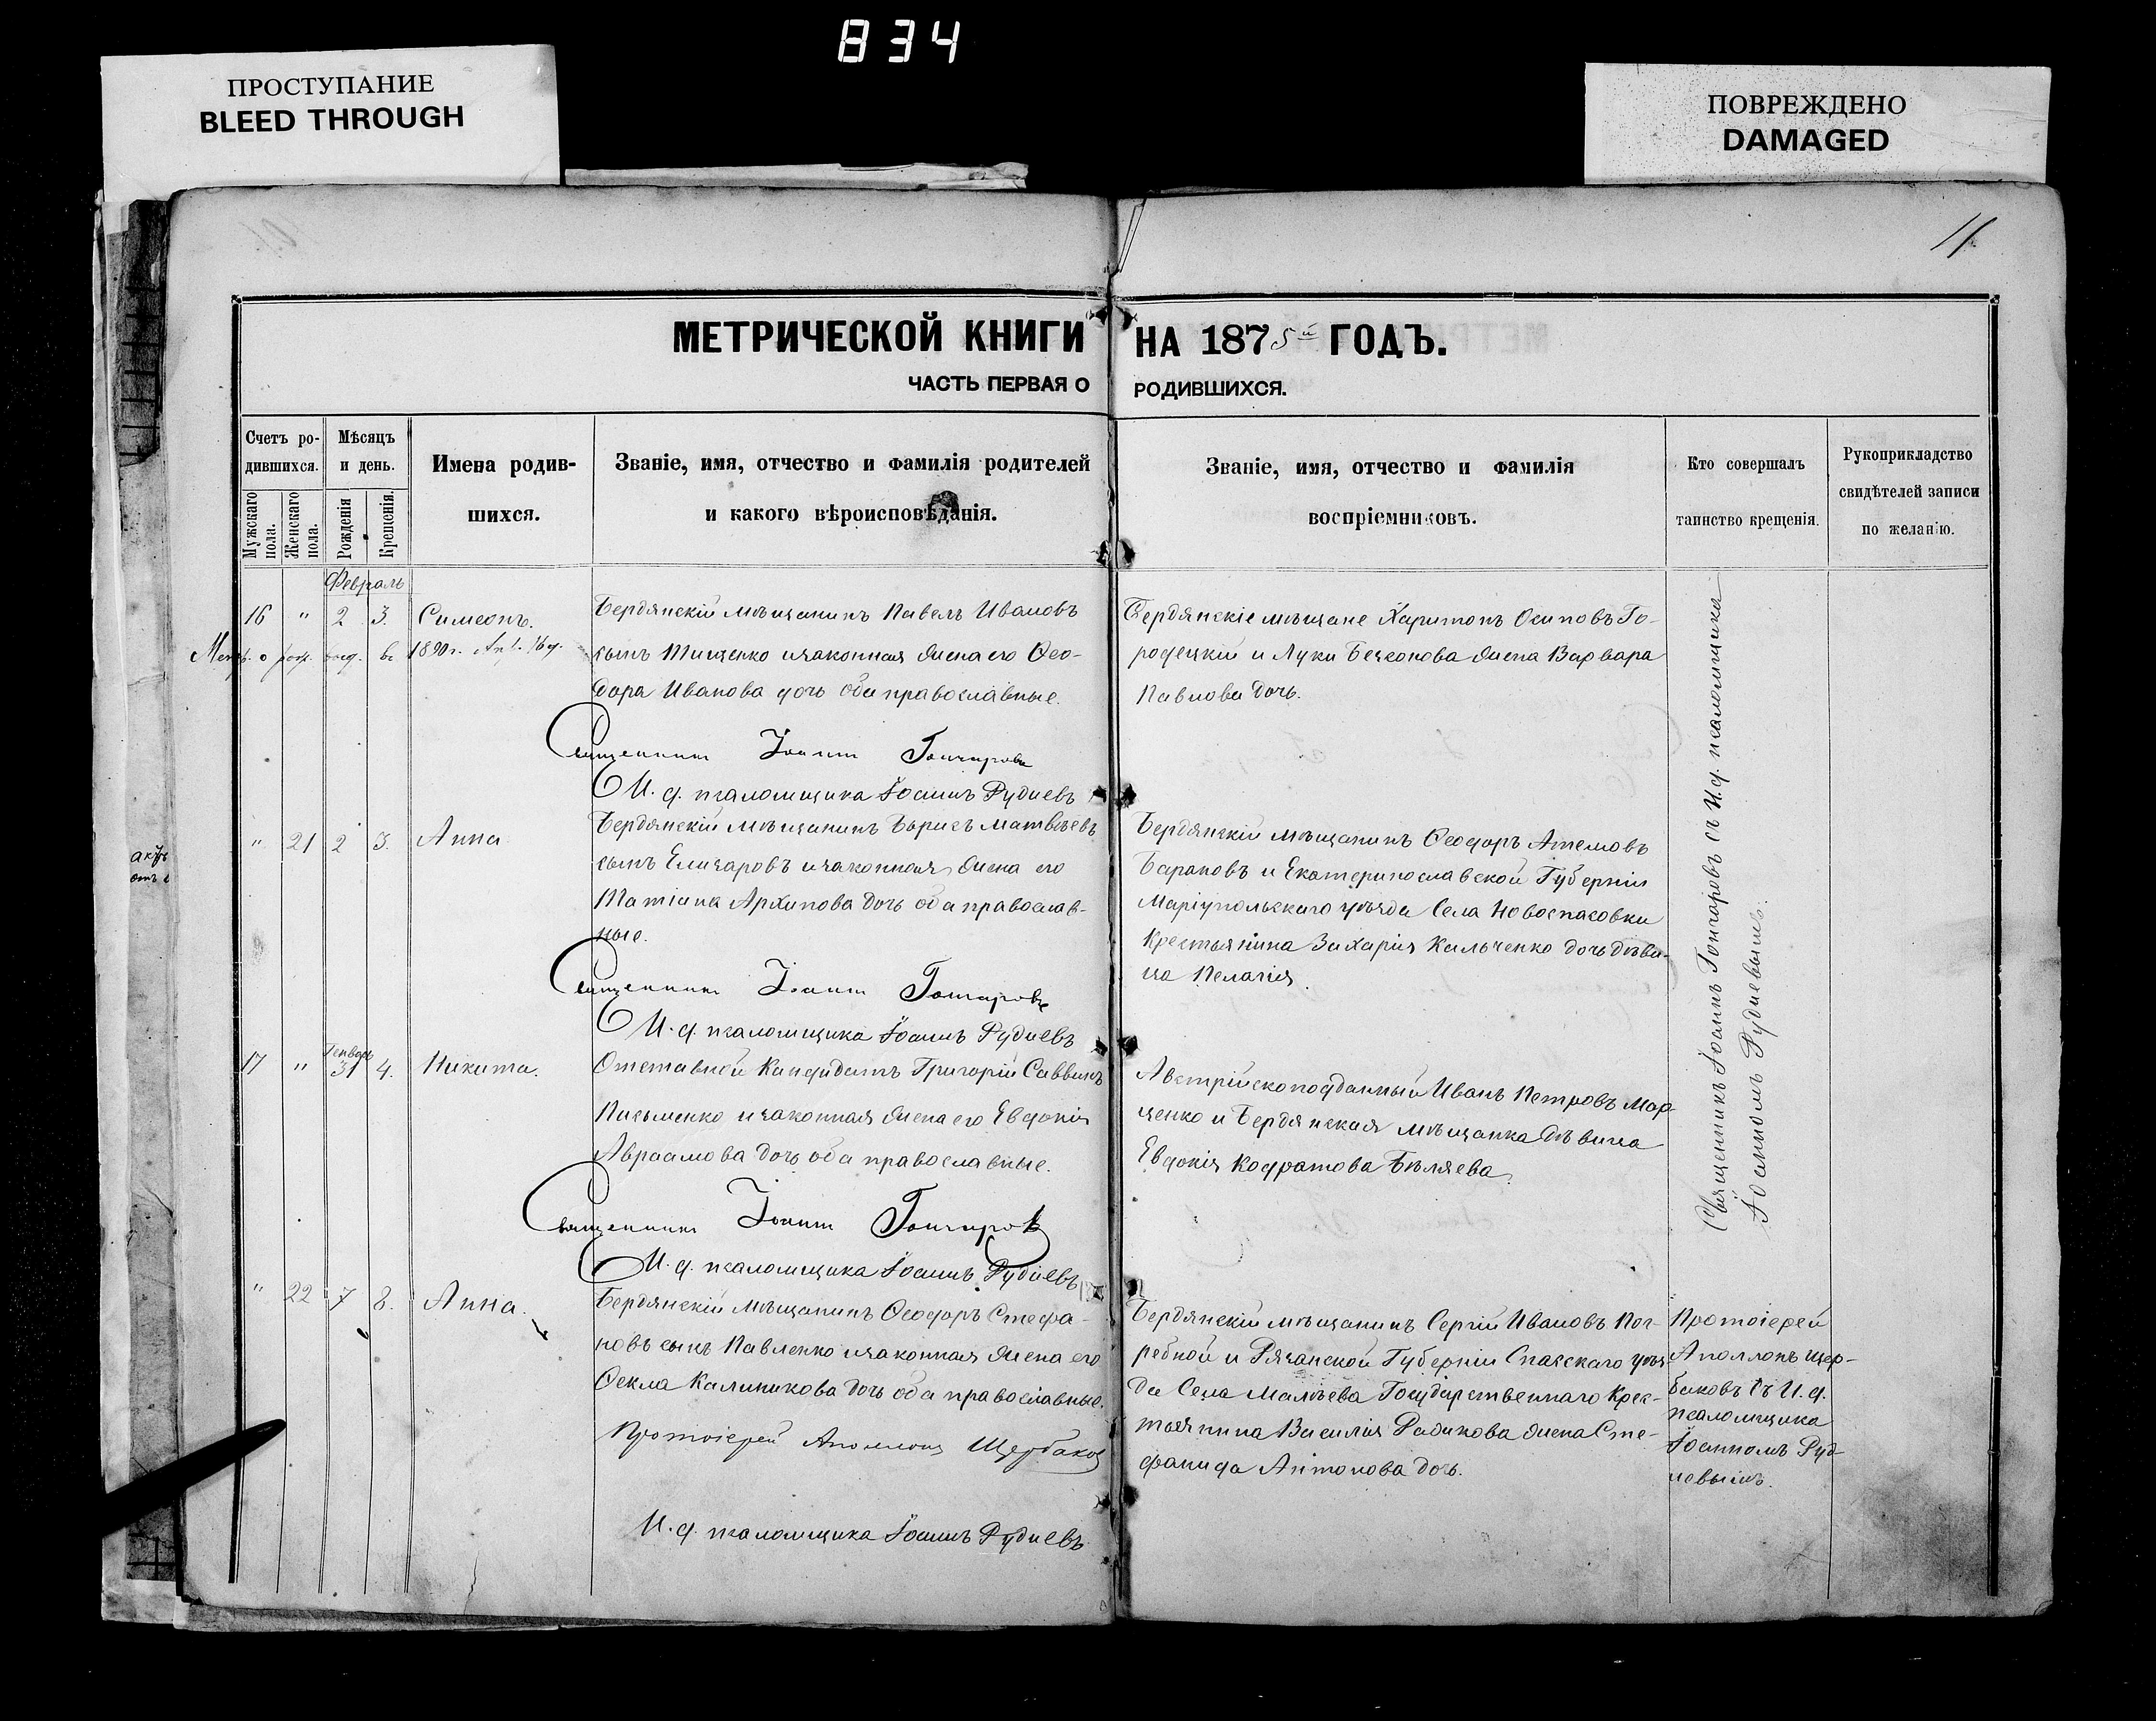 834
ПРОСТУПАНИЕ
BLEED THROUGH
ПОВРЕЖДЕНО
DAMAGED
11
МЕТРИЧЕСКОЙ КНИГИ НА 1875й ГОДЪ.
ЧАСТЬ ПЕРВАЯ О РОДИВШИХСЯ.
Счетъ ро-
дившихся.
Мужскаго
пола.
Женскаго
пола.
Мѣсяцъ
и день.
Рожденія
Крещенія.
Имена родив-
шихся.
Званіе, имя, отчество и фамилія родителей
и какого вѣроисповѣданія.
Званіе, имя, отчество и фамилія
воспріемниковъ.
Кто совершалъ
таинство крещенія.
Рукоприкладство
свидѣтелей записи
по желанію.
Февраль
16 " 2 3. Симеонъ.
1890г.
Бердянскій мѣщанинъ Павелъ Ивановъ
сынъ Тищенко и законная жена его Ѳео-
дора Иванова дочь оба православные.
Священникъ Іоаннъ Гончаровъ
И. д. псаломщика Іоаннъ Рудневъ
Бердянскіе мѣщане Харитонъ Осиповъ Го-
родецкій и Луки жена Варвара
Павлова дочь.
" 21 2 3. Анна
Бердянскій мѣщанинъ Борисъ Матвѣевъ
сынъ Елизаровъ и законная жена его
Татіана Архипова дочь оба православ-
ные.
Священникъ Іоаннъ Гончаровъ
И. д. псаломщика Іоаннъ Рудневъ
Бердянскій мѣщанинъ Ѳеодоръ
Барановъ и Екатеринославской Губерніи
Маріупольскаго уѣзда Села Новоспасовки
Крестьянина Захарія Кальченко дочь дѣви-
ца Пелагія.
17 " Генварь 31 4. Никита.
Отставной Кандидатъ Григорій Саввинъ
Письменко и законная жена его Евдокія
Авраамова дочь оба православные.
Священникъ Іоаннъ Гончаровъ
И. д. псаломщика Іоаннъ Рудневъ
Австрійскоподданный Иванъ Петровъ Мар-
ченко и Бердянская мѣщанка дѣвица
Евдокія Кодратова Бѣляева.
Священникъ Іоаннъ Гончаровъ съ И. д. псаломщика
Іоанномъ Рудневымъ.
" 22 7 8. Анна.
Бердянскій мѣщанинъ Ѳеодоръ Стефа-
новъ сынъ Павленко и законная жена его
Ѳекла Калиникова дочь оба православные.
Протоіерей Аполлонъ Щербаковъ
И. д. псаломщика Іоаннъ Рудневъ
Бердянскій мѣщанинъ Сергій Ивановъ Пог-
ребной и Рязанской Губерніи Спасскаго уѣз-
да Села Малѣева Государственнаго Крес-
тьянина Василія Радикова жена Сте-
фанида Антонова дочь.
Протоіерей
Аполлонъ Щер-
баковъ съ И. д.
псаломщика
Іоанномъ Руд-
невымъ.